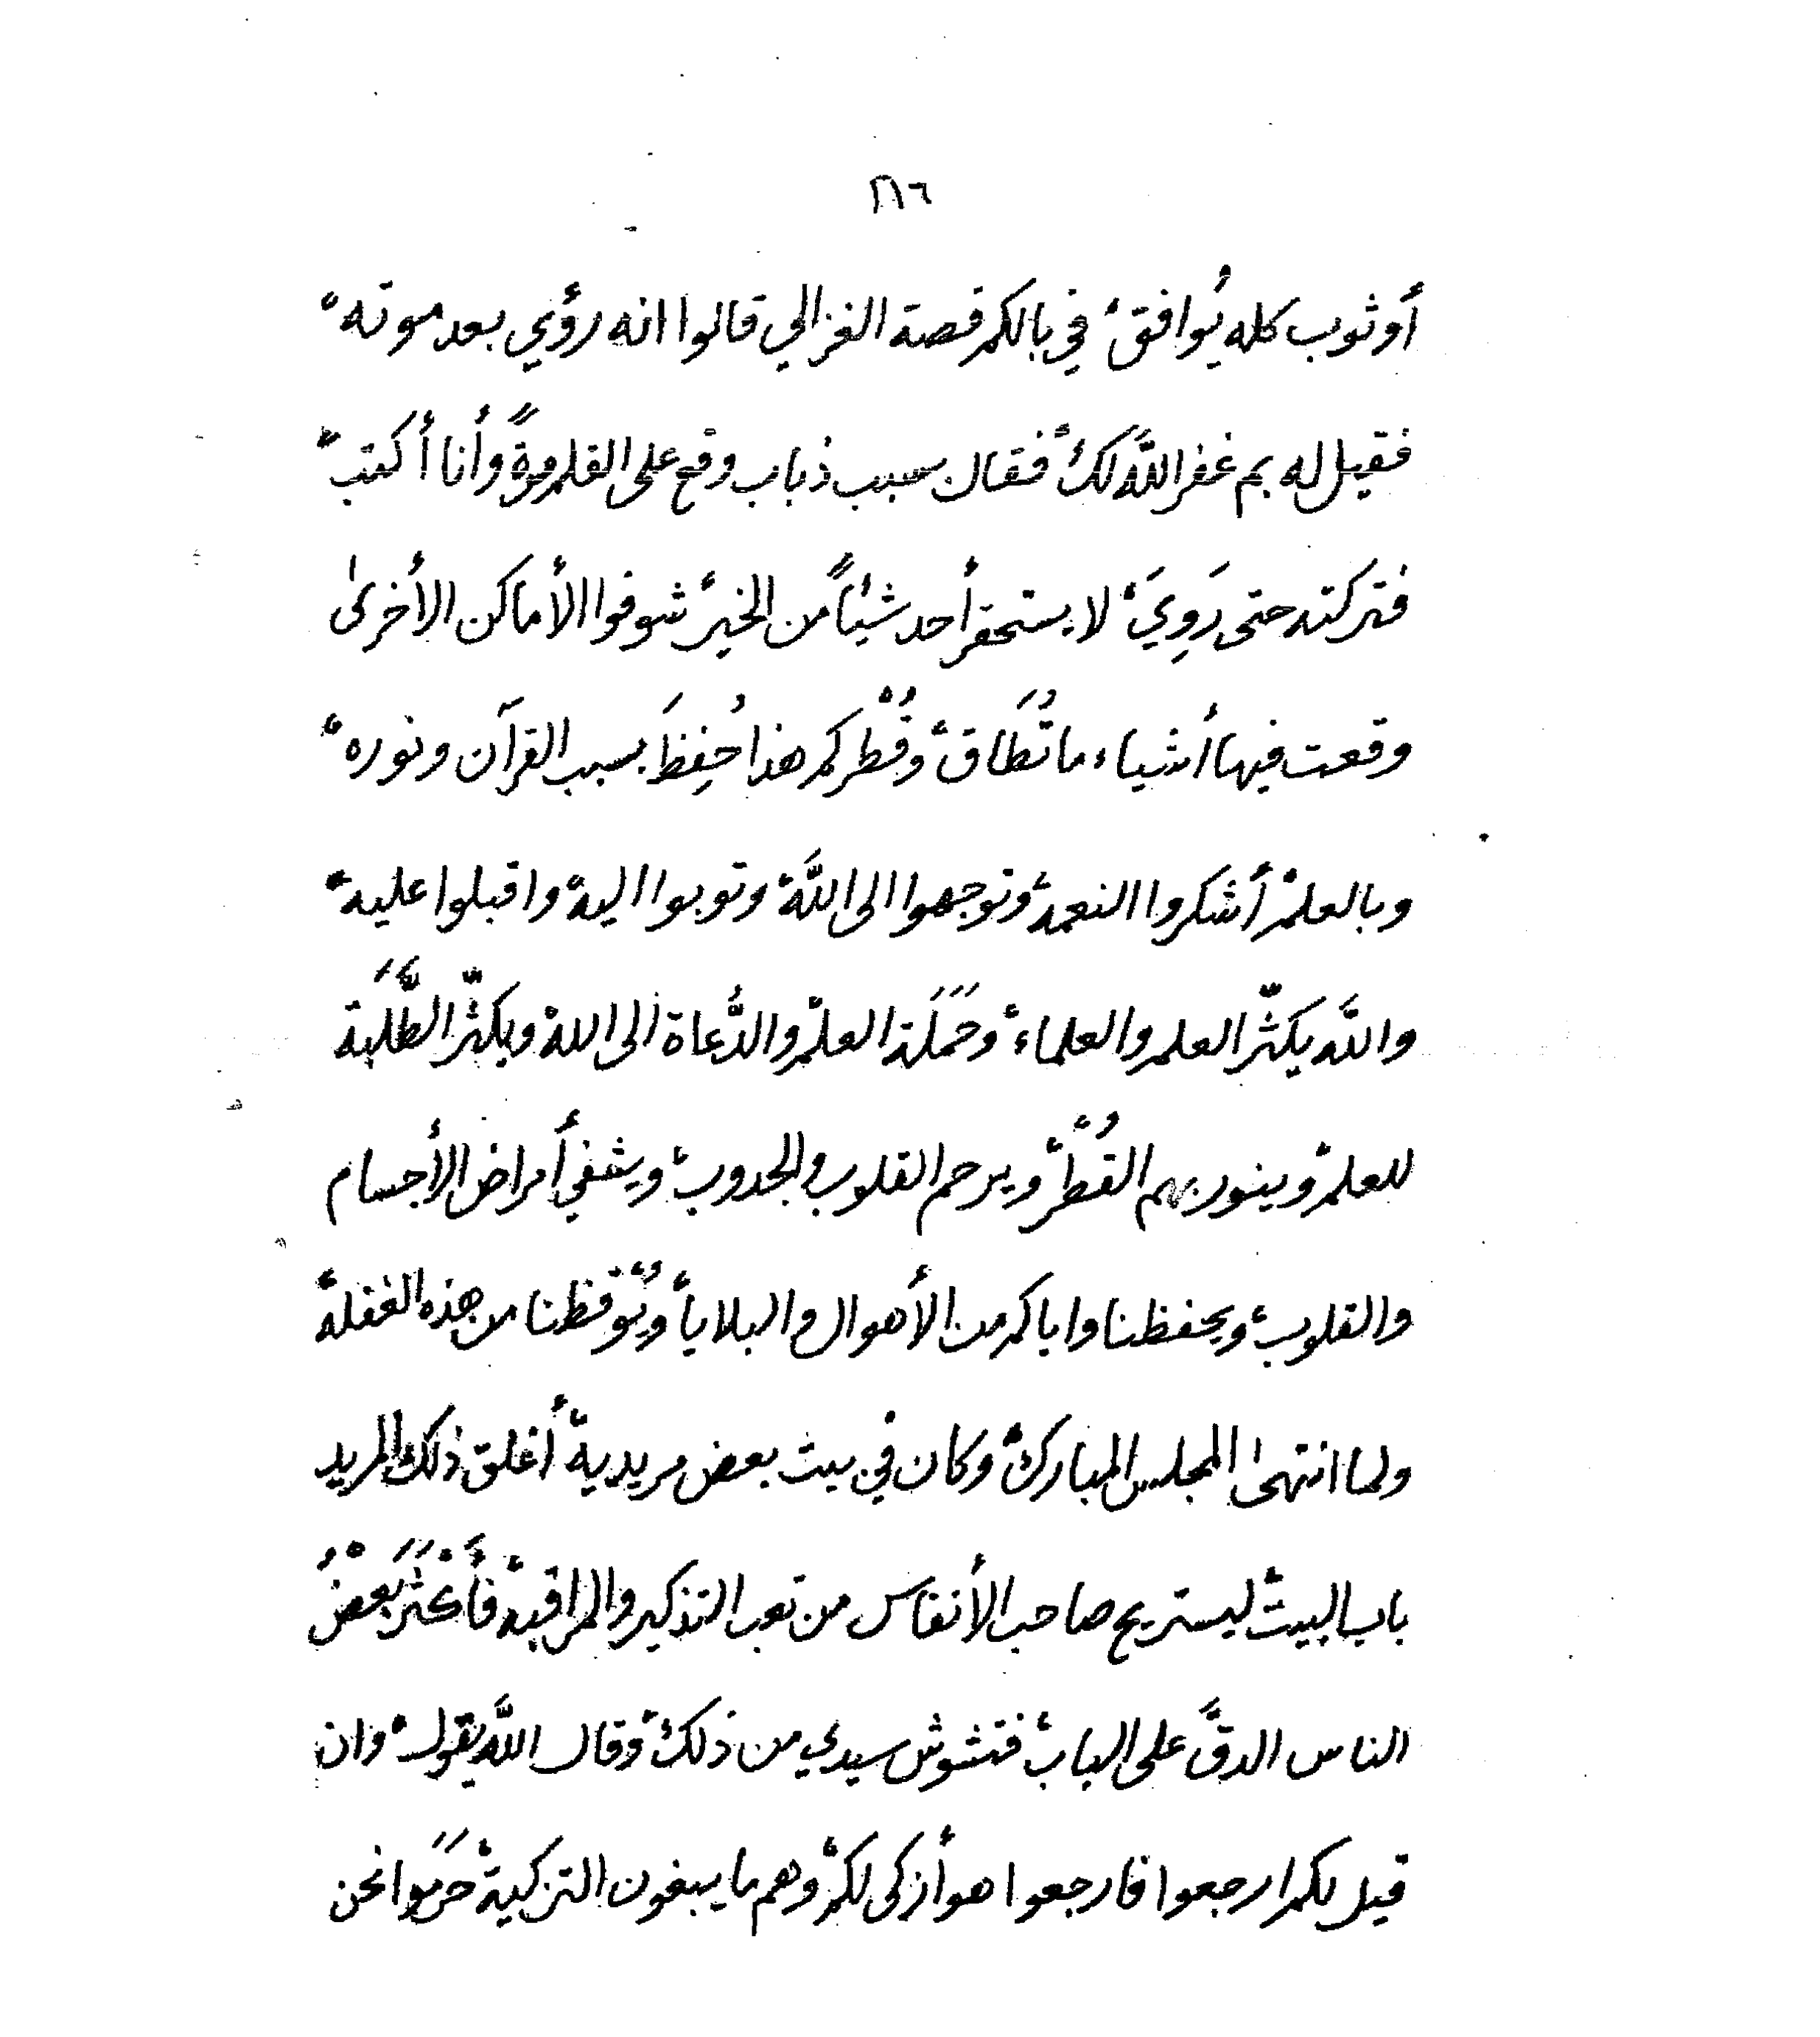 ٢١٦
أوثوب كله يُوافق، في بالكم قصة الغزالي قالوا انه رؤي بعد موته،
فقيل له بم غفر اللَّه لك، فقال بسبب ذباب وقع على القلم مرةً وأنا أكتب،
فتركته حتى رَوِيَ، لا يستحقر أحد شيئاً من الخير، شوفوا الأماكن الأخرىٰ
وقعت فيها أشياء ما تُطَاق، وقُطْركم هذا حُفِظَ بسبب القرآن ونوره،
وبالعلم، أشكروا النعمة، وتوجهوا الى اللَّه، وتوبوا اليه، واقبلوا عليه،
واللَّه يكثّر العلم والعلماء، وحَمَلَة العلم، والدُّعاة الى الله، ويكثّر الطَّلَبَة
للعلم، وينور بهم القُطْر، ويرحم القلوب والجدوب، ويشفي أمراض الأجسام
والقلوب، ويحفظنا واياكم من الأهوال والبلايا، ويُوقظنا من هذه الغفلة،
ولما انتهىٰ المجلس المبارك، وكان في بيت بعض مريديه، أغلق ذلك المريد
باب البيت، ليستريح صاحب الأنفاس من تعب التذكير والمراقبة، فأَكْثَرَ بَعْضُ
الناس الدقَّ على الباب، فتشوش سيدي من ذلك، وقال اللَّه يقول، وان
قيل لكم ارجعوا فارجعوا هو أزكى لكم، وهم ما يبغون التزكية، حَرَموا نحن